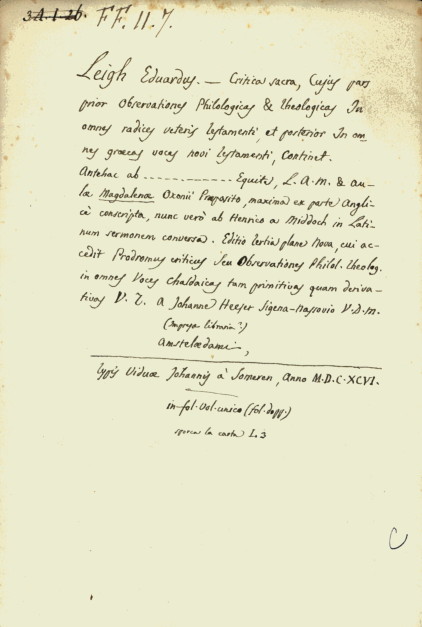 34.1.26. FF. II. 7.
Leigh Eduardus. — Critica sacra, Cujus pars
prior Observationes Philologicas & theologicas In
omnes radices veteris testamenti, et posterior In om
nes græcas voces novi testamenti, Continet.
Antehac ab -------------- Equite, L. A. M. & au-
læ Magdalenæ Oxonii Præposito, maxima ex parte Angli-
cè conscripta, nunc verò ab Henrico a Middoch in Lati-
num sermonem conversa. Editio tertia plane Nova, cui ac-
cedit Prodromus criticus seu Observationes Philol. theolog.
in omnes Voces Chaldaicas tam primitivas quam deriva-
tivas V. T. a Johanne Heeser Sigena-Nassovio V. D. M.
(impresa libraria?)
Amstelædami,
typis Viduæ Johannis à Someren, Anno M.D.C.XCVI.
in fol. vol. unico (fol. dopp.)
sporca la carta L. 3
C